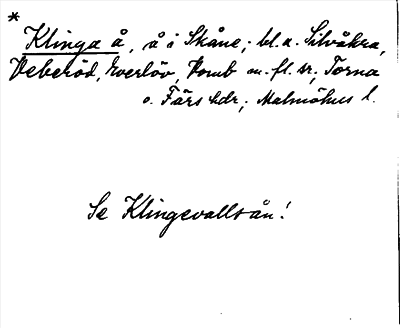 *
Klinga å, å i Skåne; bl.a. Silvåkra,
Veberöd, Everlöv, Vomb m. fl. sr, Torna
o. Färs hdr; Malmöhus l.
Se Klingavallsån!